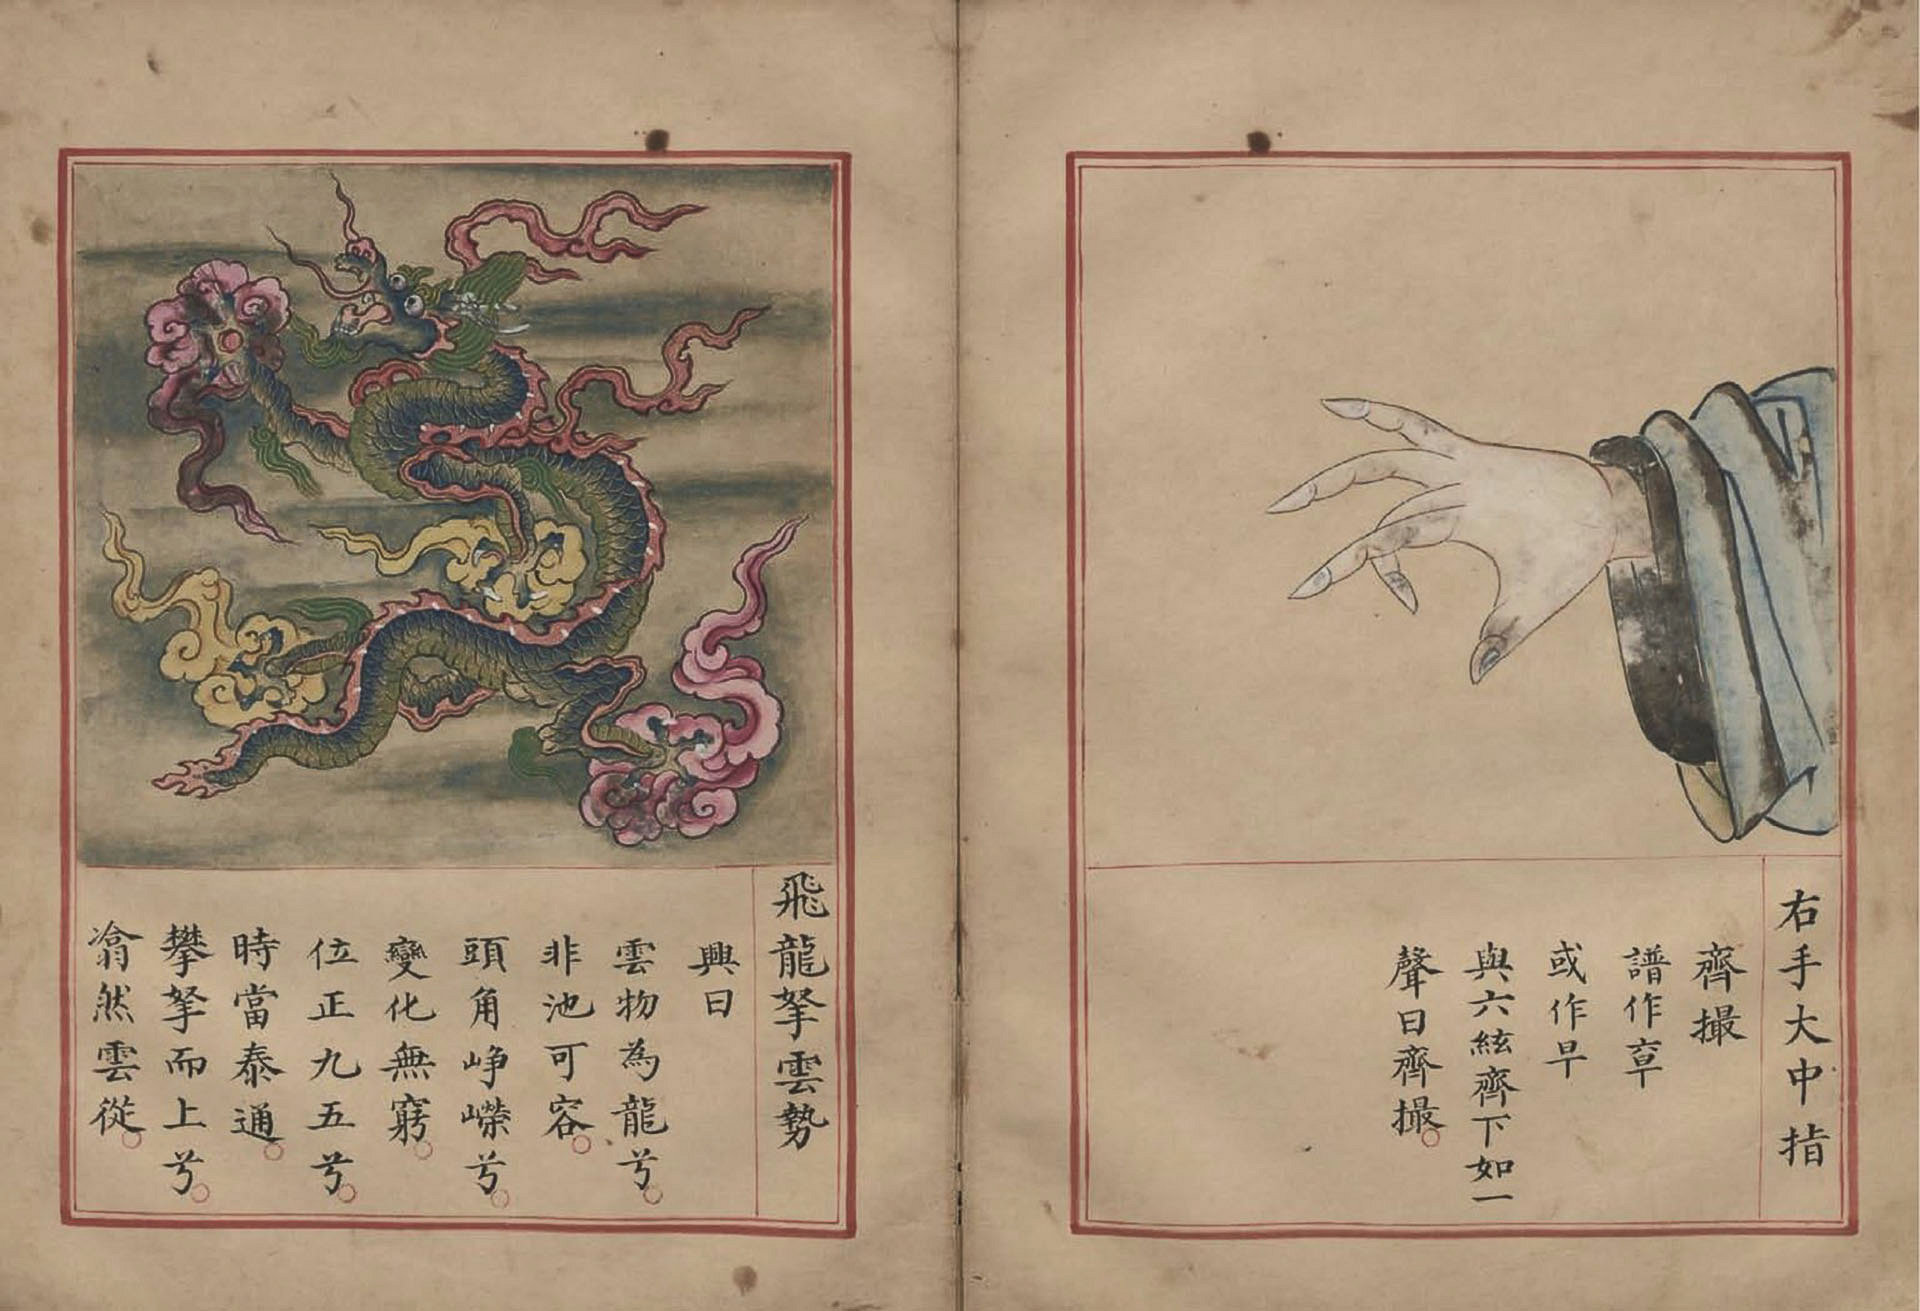 右手大中指
齊撮
譜作
或作早
與六絃齊下如一
聲曰齊撮。
飛龍拏雲勢
興曰
雲物為龍兮。
非池可容。
頭角崢嶸兮。
變化無窮。
位正九五兮。
時當泰通。
攀拏而上兮。
然雲從。